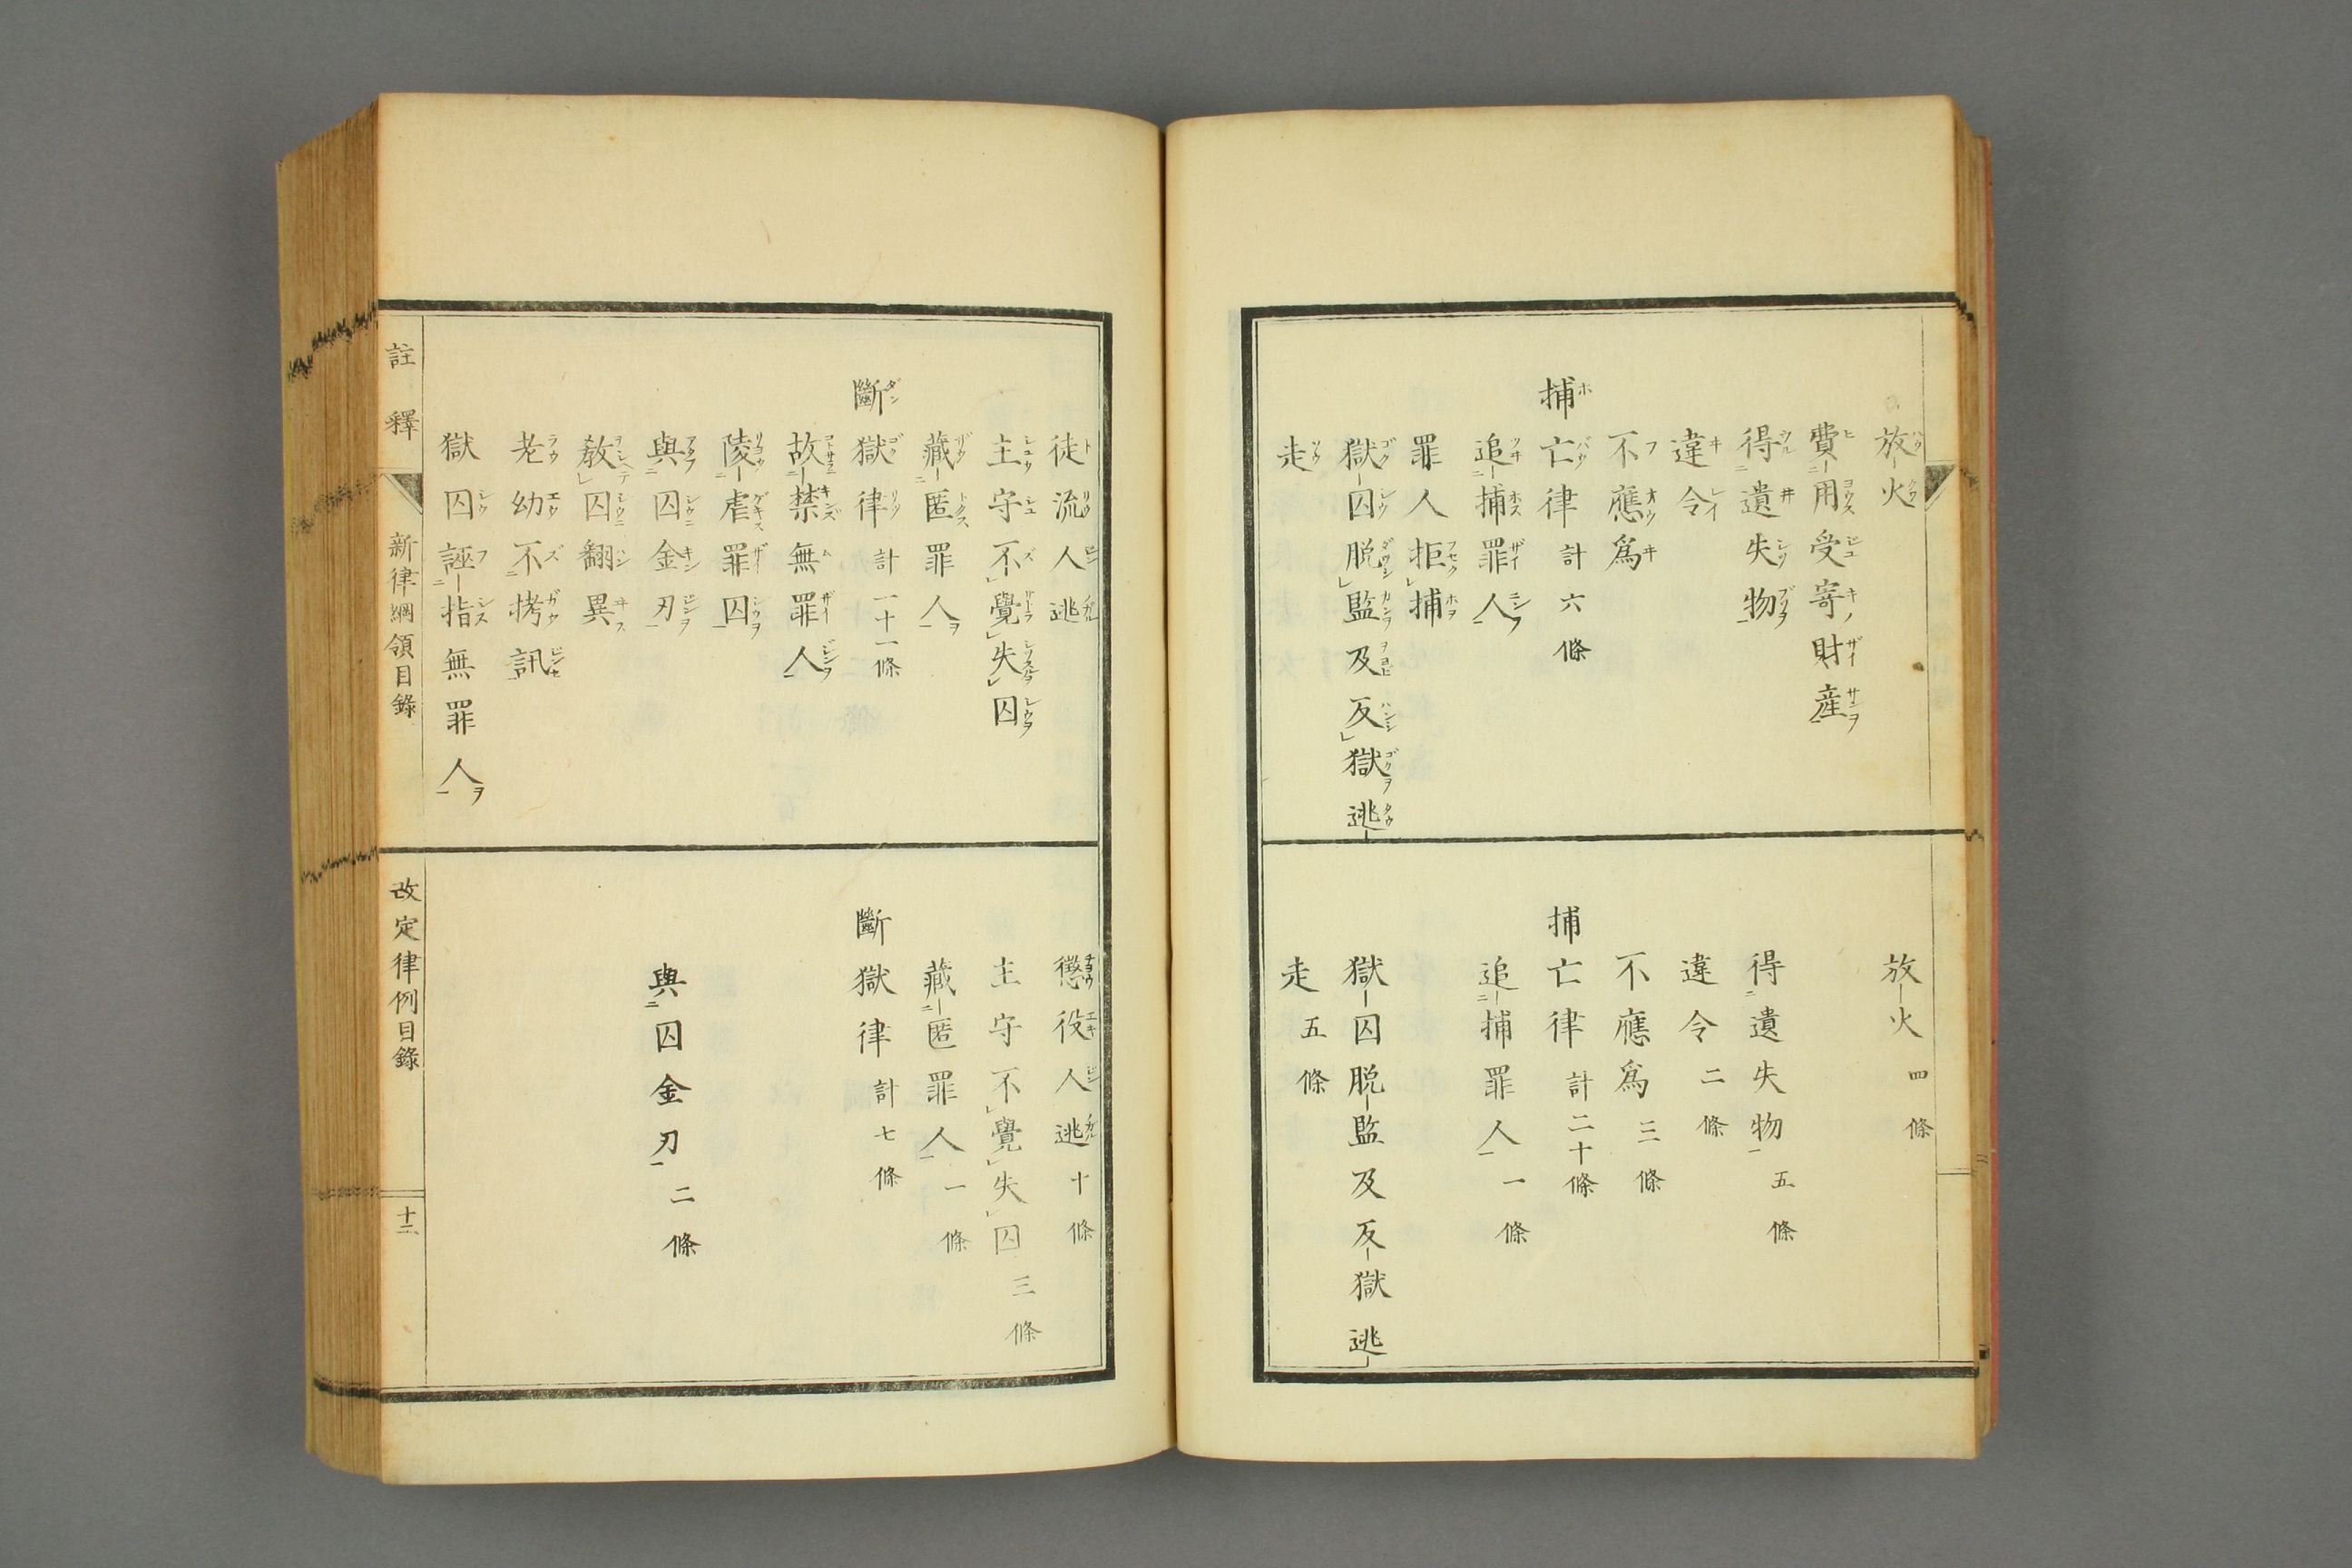 放火
費用受寄財産
得遺失物
違令
不應爲
捕亡律 計六條
追捕罪人
罪人拒捕
獄囚脱監及反獄逃
走
放火 四條
得遺失物 五條
違令 二條
不應爲 三條
捕亡律 計二十條
追捕罪人 一條
獄囚脱監及反獄逃
走 五條
徒流人逃
主守不覺失囚
藏匿罪人
斷獄律 計一十一條
故禁無罪人
陵虐罪囚
與囚金刃
教囚翻異
老幼不拷訊
獄囚誣指無罪人
懲役人逃 十條
主守不覺失囚 三條
藏匿罪人 一條
斷獄律 計七條
與囚金刃 二條
註釋 新律綱領目錄
改定律例目錄
十二